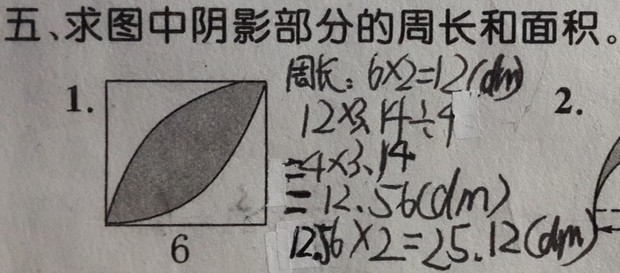 五、求图中阴影部分的周长和面积。
1.
周长：6×2=12(dm)
2.
12×3.14÷4
=4×3.14
=12.56(dm)
6
12.56×2=25.12(dm)